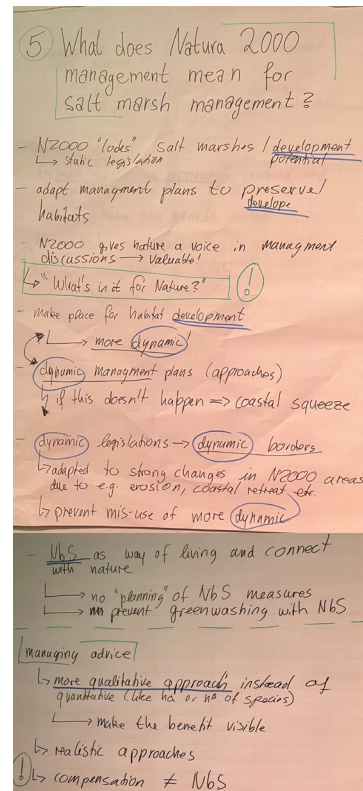 5 What does Natura 2000
management mean for
salt marsh management?
- N2000 "locks" salt marshes / development
↳ static legislation potential
- adapt managment plans to preserve/
habitats develope
- N2000 gives nature a voice in managment
discussions → valuable!
↳ "What's in it for Nature?" !
- make place for habitat development
↳ more dynamic!
- dynamic managment plans (approaches)
↳ if this doesn't happen => coastal squeeze
- dynamic legislations → dynamic borders
↳ adapted to strong changes in N2000 areas
due to e.g. erosion, coastal retreat etc.
↳ prevent mis-use of more dynamic
- NbS as way of living and connect
with nature
↳ no "planning" of NbS measures
↳ prevent greenwashing with NbS
managing advice
↳ more qualitative approach instead of
quantitative (like ha or n° of species)
↳ make the benefit visible
↳ realistic approaches
! ↳ compensation ≠ NbS